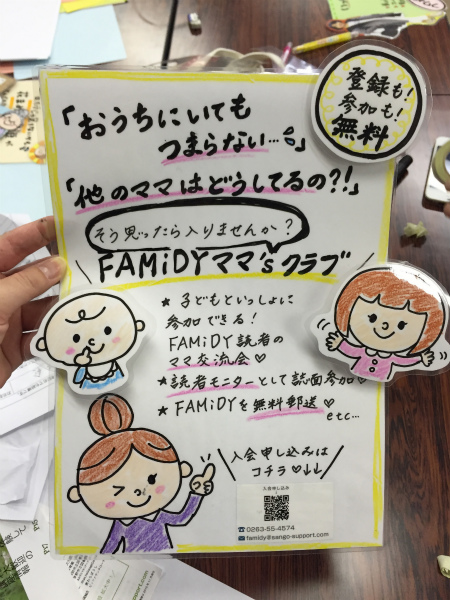 登録も!
参加も!
無料
「おうちにいても
つまらない…」
「他のママはどうしてるの?!」
そう思ったら入りませんか?
\FAMiDYママ'sクラブ/
★子どもといっしょに
参加できる!
FAMiDY読者の
ママ交流会♡
★読者モニターとして誌面参加♡
★FAMiDYを無料郵送♡
etc…
\入会申し込みは
コチラ♡↓↓/
入会申し込み
☎0263-55-4574
✉famidy@sango-support.com